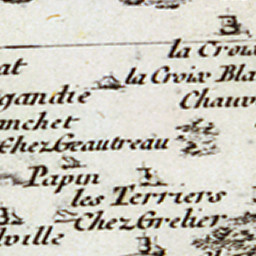 la Croix
at
la Croix Bla
gandie
Chauv
anchet
Chez Geautreau
Papin
les Terriers
Chez Grelier
lville